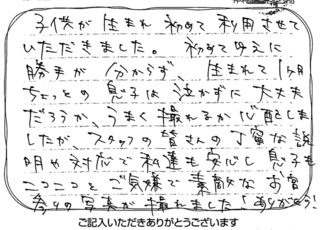 子供が生まれ初めて利用させて
いただきました。初めて故えに
勝手が分からず、生まれて1ヶ月
ちょっとの息子は泣かずに大丈夫
だろうか、うまく撮れるか心配しま
したが、スタッフの皆さんの丁寧な説
明や対応で私達も安心し息子も
ニコニコとご気嫌で素敵なお宮
参りの写真が撮れました!ありがとう!
ご記入いただきありがとうございます